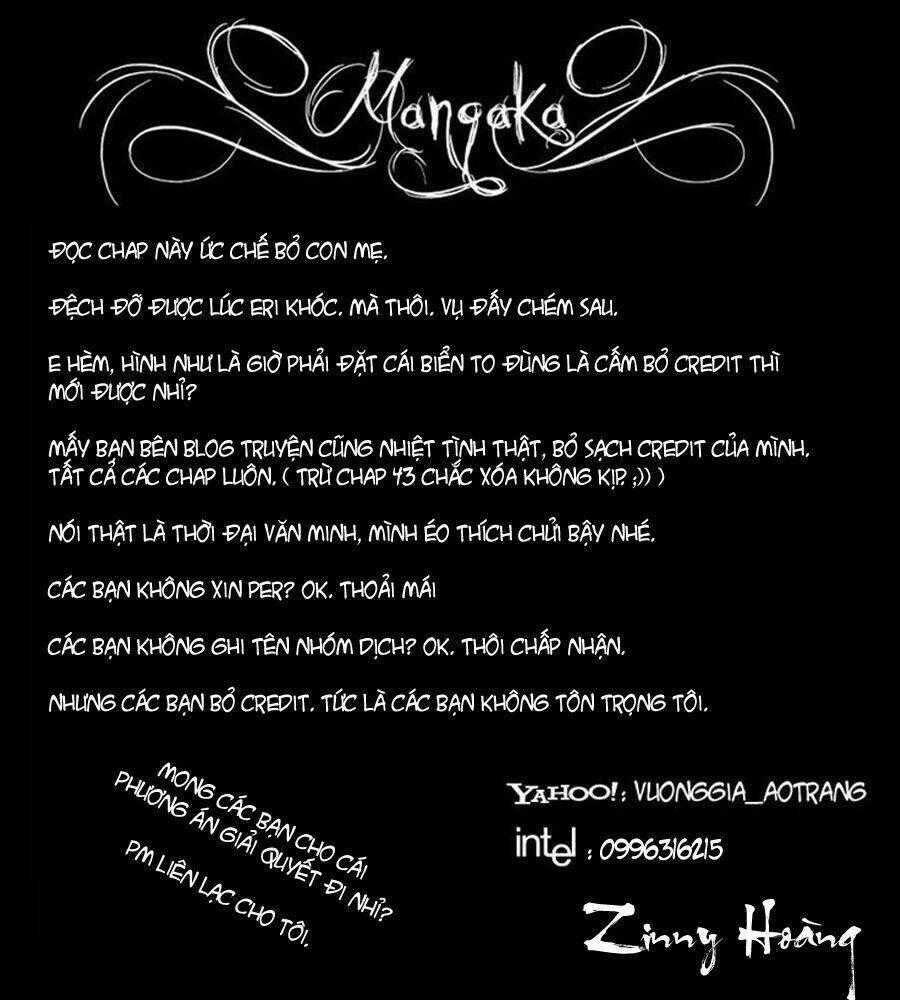 Mangaka
ĐỌC CHAP NÀY ỨC CHẾ BỎ CON MẸ.
ĐỆCH ĐỠ ĐƯỢC LÚC ERI KHÓC. MÀ THÔI. VỤ ĐẤY CHÉM SAU.
E HÈM, HÌNH NHƯ LÀ GIỜ PHẢI ĐẶT CÁI BIỂN TO ĐÙNG LÀ CẤM BỎ CREDIT THÌ
MỚI ĐƯỢC NHỈ?
MẤY BẠN BÊN BLOG TRUYỆN CŨNG NHIỆT TÌNH THẬT, BỎ SẠCH CREDIT CỦA MÌNH.
TẤT CẢ CÁC CHAP LUÔN. ( TRỪ CHAP 43 CHẮC XÓA KHÔNG KỊP. ;)) )
NÓI THẬT LÀ THỜI ĐẠI VĂN MINH, MÌNH ÉO THÍCH CHỬI BẬY NHÉ.
CÁC BẠN KHÔNG XIN PER? OK. THOẢI MÁI
CÁC BẠN KHÔNG GHI TÊN NHÓM DỊCH? OK. THÔI CHẤP NHẬN.
NHƯNG CÁC BẠN BỎ CREDIT. TỨC LÀ CÁC BẠN KHÔNG TÔN TRỌNG TÔI.
MONG CÁC BẠN CHO CÁI
PHƯƠNG ÁN GIẢI QUYẾT ĐI NHỈ?
PM LIÊN LẠC CHO TÔI.
YAHOO!: VUONGGIA_AOTRANG
intel : 0996316215
Zinny Hoàng